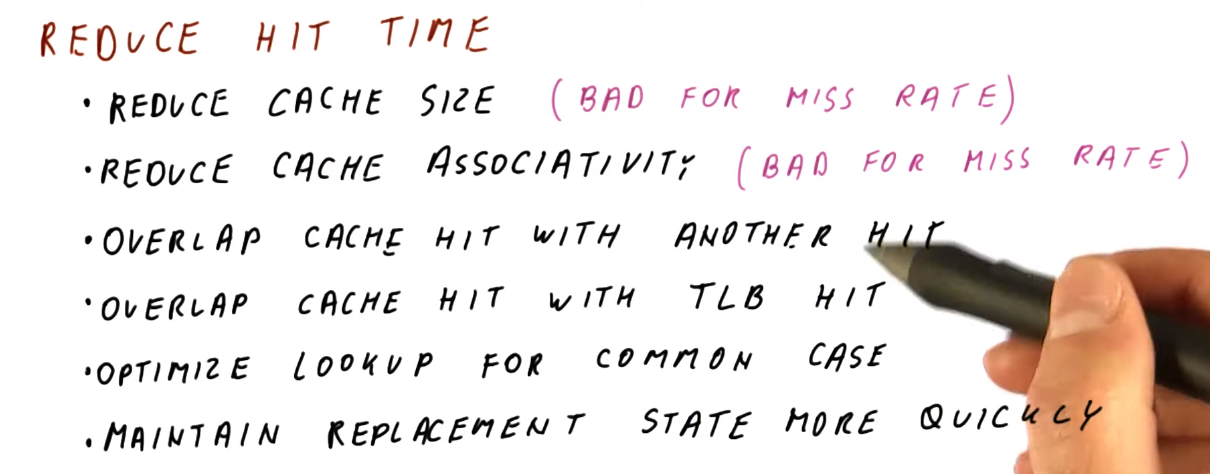 REDUCE HIT TIME
• REDUCE CACHE SIZE (BAD FOR MISS RATE)
• REDUCE CACHE ASSOCIATIVITY (BAD FOR MISS RATE)
• OVERLAP CACHE HIT WITH ANOTHER HIT
• OVERLAP CACHE HIT WITH TLB HIT
• OPTIMIZE LOOKUP FOR COMMON CASE
• MAINTAIN REPLACEMENT STATE MORE QUICKLY